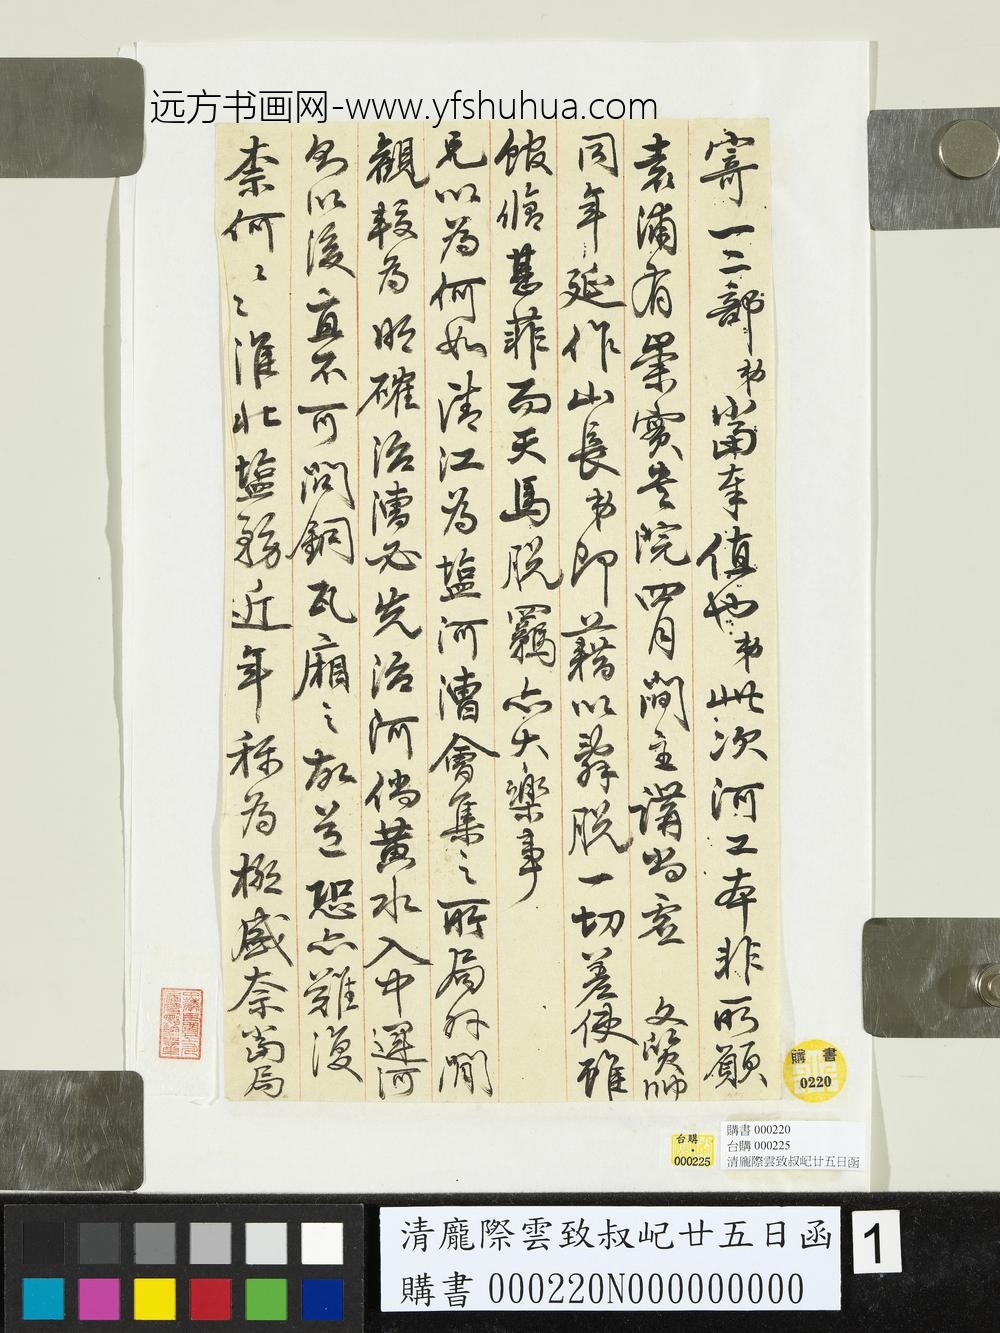 远方书画网-www.yfshuhua.com
寄一二部弟當奉值也弟此次河工本非所願
袁浦有崇實書院四月間主講尚虛 文賢帥
同年延作山長弟即藉以辭脫一切差使雖
館脩甚菲而天馬脫羈亦大樂事
兄以為何如清江為鹽河漕會集之所局外閒
觀較為明確治漕必先治河倘黃水入中運河
則以後直不可問銅瓦廂之故道恐亦難復
柰何〻〻淮北鹽務近年稱為極盛奈當局
購書
0220
台購
000225
購書 000220
台購 000225
清龐際雲致叔屺廿五日函
清龐際雲致叔屺廿五日函
購書 000220N000000000
1